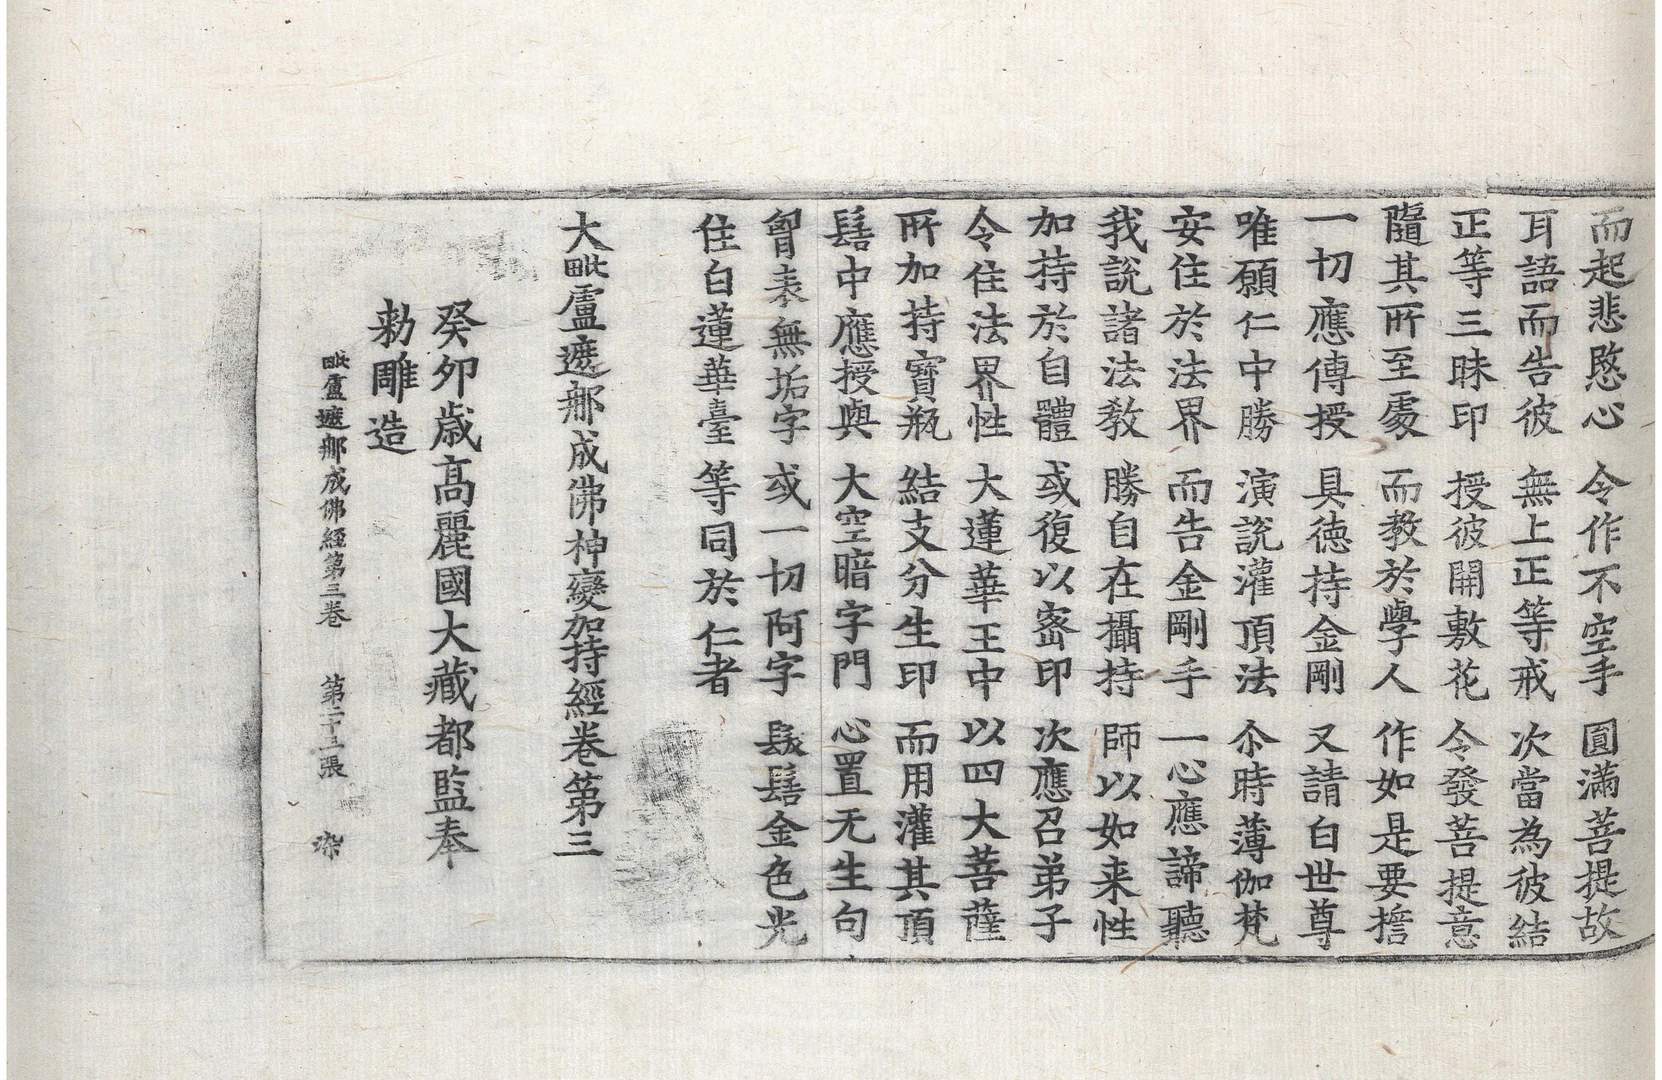 而起悲愍心 令作不空手 圓滿菩提故
耳語而告彼 無上正等戒 次當為彼結
正等三昧印 授彼開敷花 令發菩提意
隨其所至處 而教於學人 作如是要誓
一切應傳授 具德持金剛 又請白世尊
唯願仁中勝 演說灌頂法 尒時薄伽梵
安住於法界 而告金剛手 一心應諦聽
我說諸法教 勝自在攝持 師以如来性
加持於自體 或復以密印 次應召弟子
令住法界性 大蓮華王中 以四大菩薩
所加持寶瓶 結支分生印 而用灌其頂
髻中應授與 大空暗字門 心置无生句
胷表無垢字 或一切阿字 髮髻金色光
住白蓮華臺 等同於仁者
大毗盧遮那成佛神變加持經卷第三
癸卯歲高麗國大藏都監奉
勅雕造
毗盧遮那成佛經第三卷 第二十二張 染